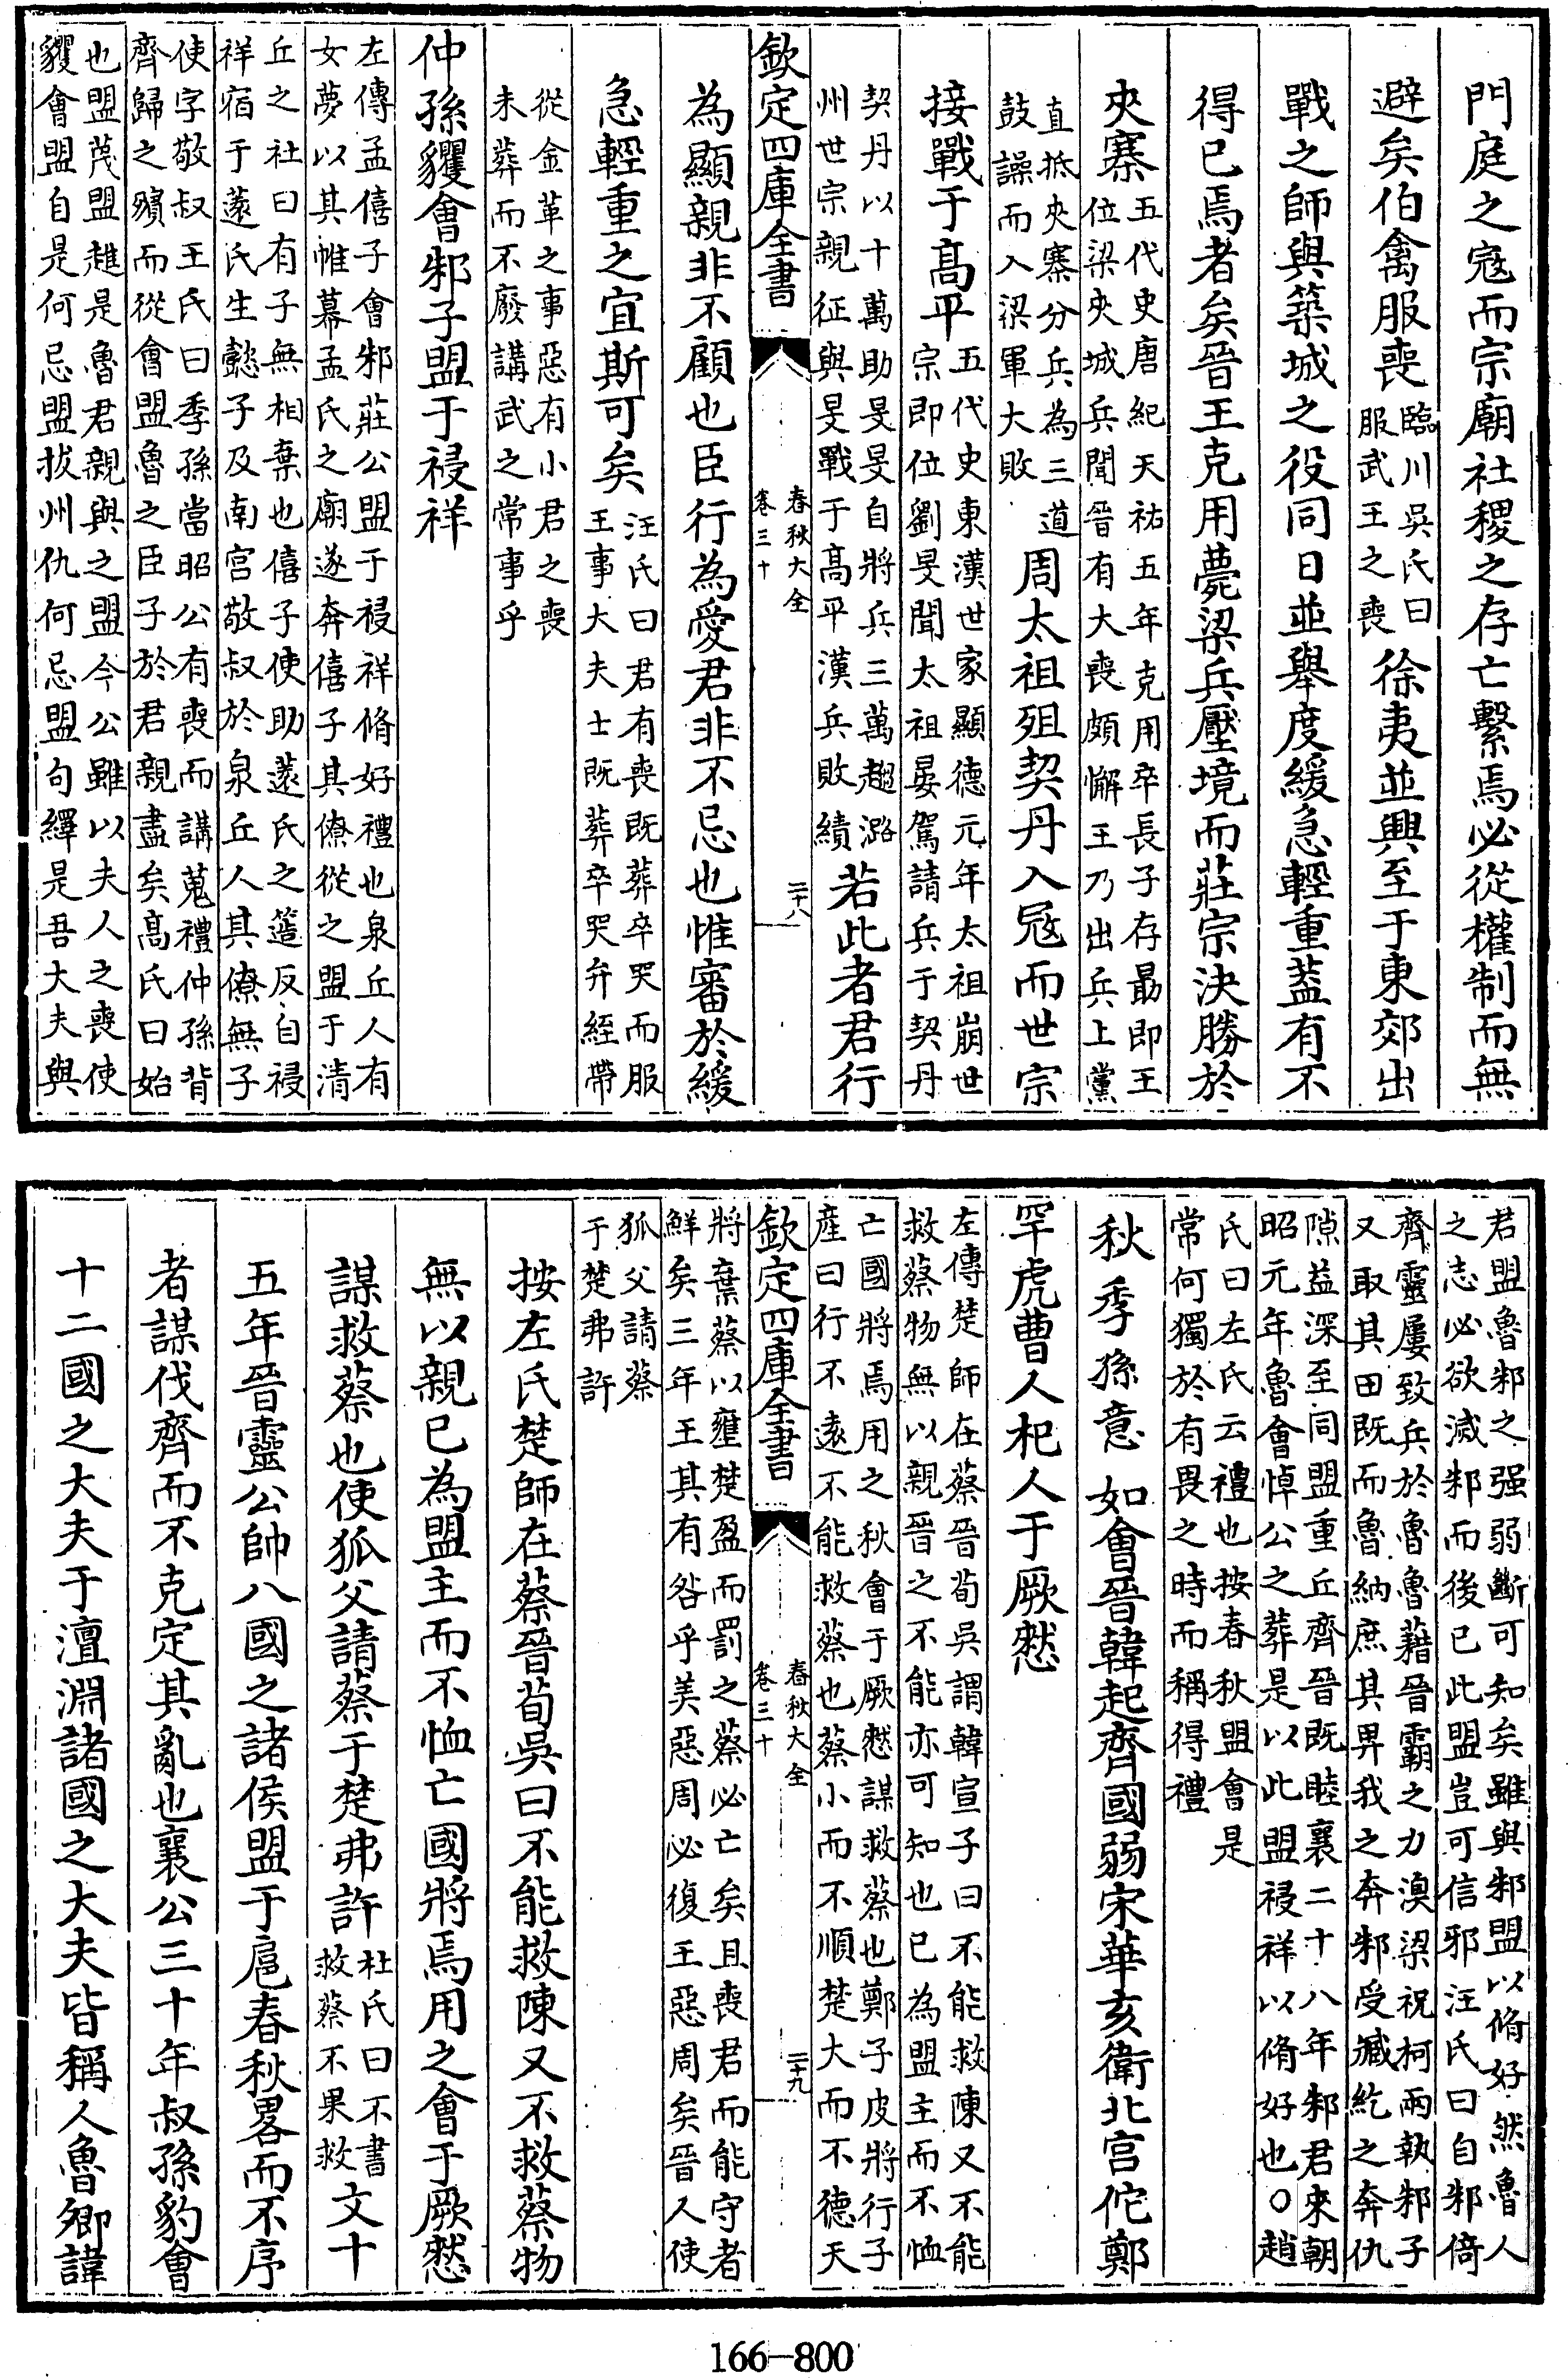 門庭之冦而宗廟社稷之存亡繫焉必從權制而無
避矣伯禽服喪臨川吳氏曰服武王之喪徐夷並興至于東郊出
戰之師與築城之役同日並舉度緩急輕重蓋有不
得已焉者矣晉王克用薨梁兵壓境而莊宗決勝於
夾寨五代史唐紀天祐五年克用卒長子存勗即王位梁夾城兵聞晉有大喪頗懈王乃出兵上黨
直抵夾寨分兵為三道鼓譟而入梁軍大敗周太祖殂契丹入冦而世宗
接戰于髙平五代史東漢世家顯德元年太祖崩世宗即位劉旻聞太祖晏駕請兵于契丹
契丹以十萬助旻旻自將兵三萬趨潞州世宗親征與旻戰于髙平漢兵敗績若此者君行
欽定四庫全書
春秋大全
卷三十
二十八
為顯親非不顧也臣行為愛君非不忌也惟審於緩
急輕重之宜斯可矣汪氏曰君有喪既葬卒哭而服王事大夫士既葬卒哭弁絰帶
從金革之事惡有小君之喪未葬而不廢講武之常事乎
仲孫貜會邾子盟于祲祥
左傳孟僖子會邾莊公盟于祲祥脩好禮也泉丘人有
女夢以其帷幕孟氏之廟遂奔僖子其僚從之盟于清
丘之社曰有子無相棄也僖子使助薳氏之簉反自祲
祥宿于薳氏生懿子及南宫敬叔於泉丘人其僚無子
使字敬叔王氏曰季孫當昭公有喪而講蒐禮仲孫背
齊歸之殯而從會盟魯之臣子於君親盡矣髙氏曰始
也盟蔑盟趡是魯君親與之盟今公雖以夫人之喪使
貜會盟自是何忌盟拔州仇何忌盟句繹是吾大夫與
君盟魯邾之强弱斷可知矣雖與邾盟以脩好然魯人
之志必欲滅邾而後已此盟豈可信邪汪氏曰自邾倚
齊靈屢致兵於魯魯藉晉霸之力湨梁祝柯兩執邾子
又取其田既而魯納庶其畀我之奔邾受臧紇之奔仇
隙益深至同盟重丘齊晉既睦襄二十八年邾君來朝
昭元年魯會悼公之葬是以此盟祲祥以脩好也○趙
氏曰左氏云禮也按春秋盟會是
常何獨於有畏之時而稱得禮
秋季孫意如會晉韓起齊國弱宋華亥衛北宫佗鄭
罕虎曹人杞人于厥憖
左傳楚師在蔡晉荀吳謂韓宣子曰不能救陳又不能
救蔡物無以親晉之不能亦可知也已為盟主而不恤
亡國將焉用之秋會于厥憖謀救蔡也鄭子皮將行子
産曰行不遠不能救蔡也蔡小而不順楚大而不德天
欽定四庫全書
春秋大全
卷三十
二十九
將棄蔡以壅楚盈而罰之蔡必亡矣且喪君而能守者
鮮矣三年王其有咎乎美惡周必復王惡周矣晉人使
狐父請蔡
于楚弗許
按左氏楚師在蔡晉荀吳曰不能救陳又不救蔡物
無以親已為盟主而不恤亡國將焉用之會于厥憖
謀救蔡也使狐父請蔡于楚弗許杜氏曰不書救蔡不果救文十
五年晉靈公帥八國之諸侯盟于扈春秋畧而不序
者謀伐齊而不克定其亂也襄公三十年叔孫豹會
十二國之大夫于澶淵諸國之大夫皆稱人魯卿諱
166-800